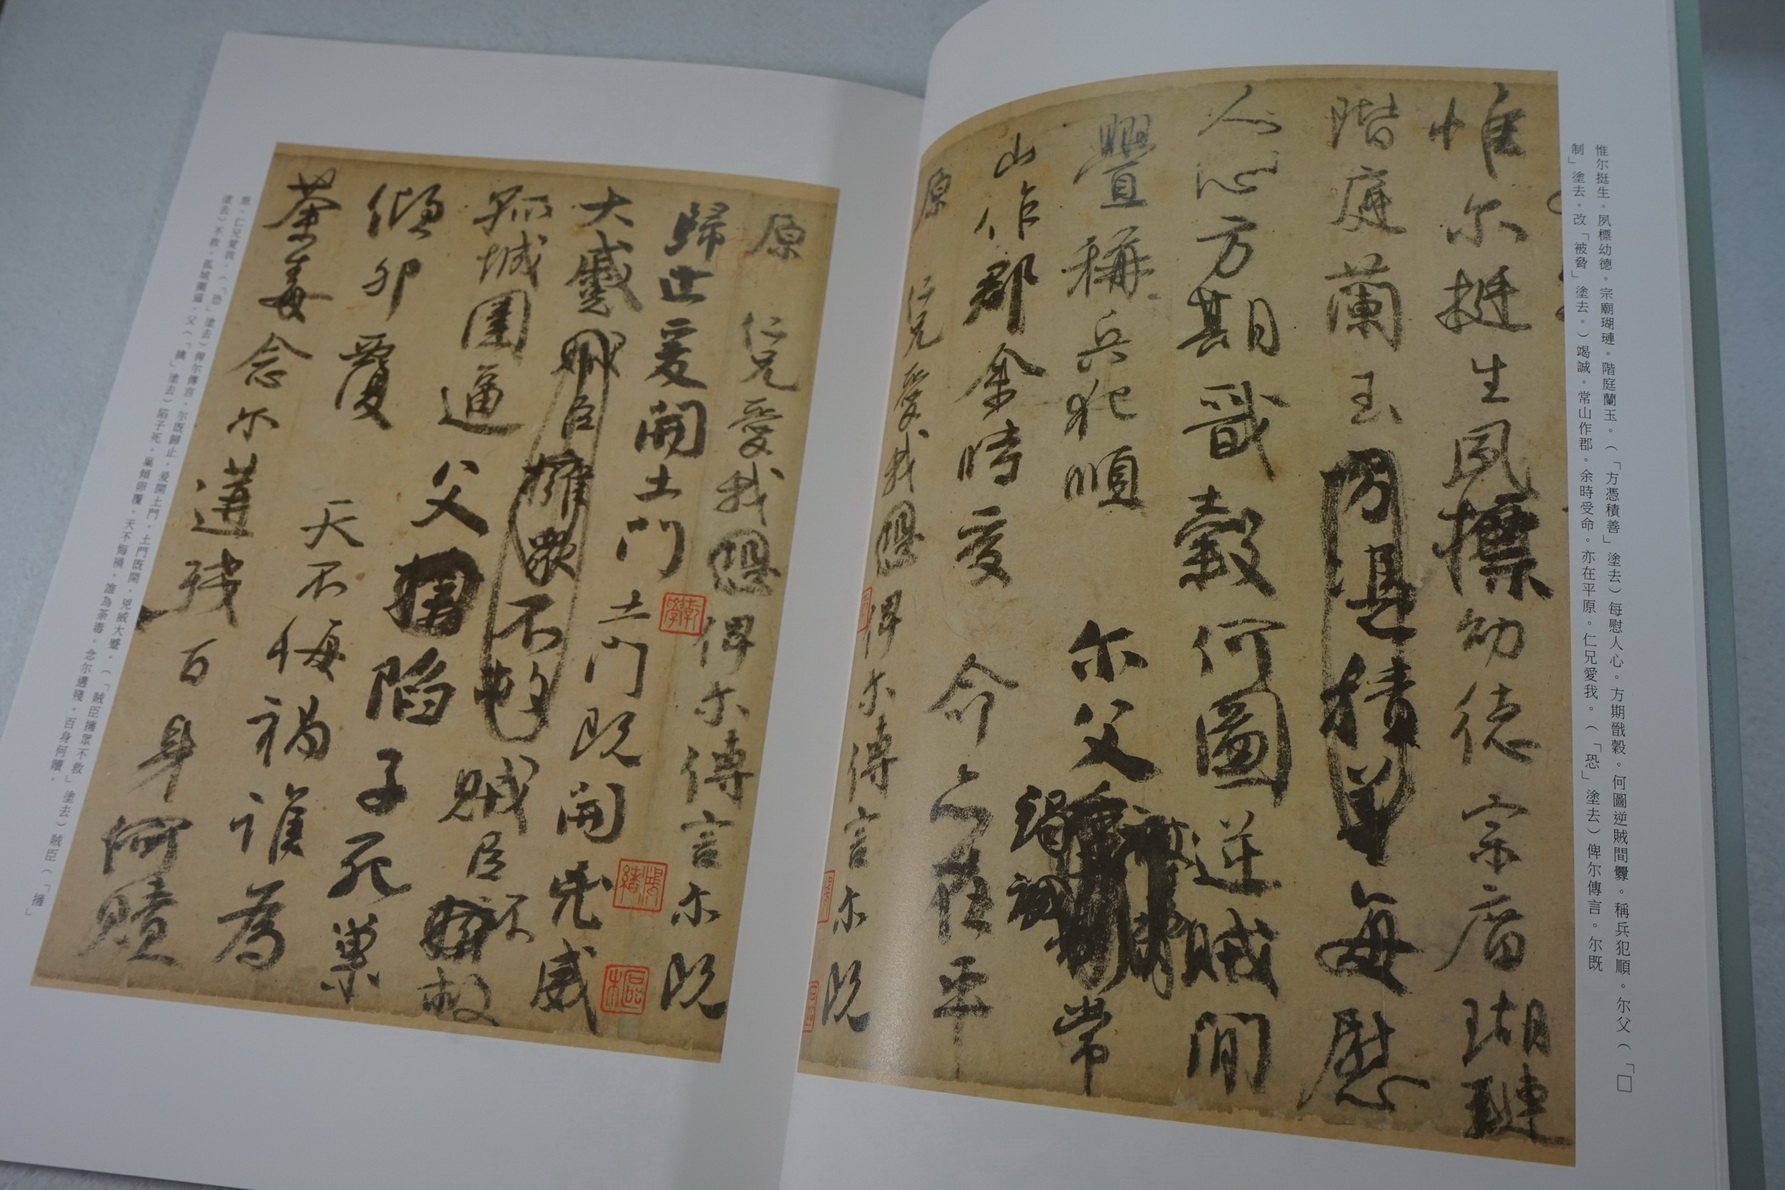 惟尔挺生。夙標幼德。宗廟瑚璉。階庭蘭玉。(「方憑積善」塗去)每慰人心。方期戩穀。何圖逆賊間釁。稱兵犯順。尔父(「□
制」塗去。改「被脅」塗去。)竭誠。常山作郡。余時受命。亦在平原。仁兄愛我。(「恐」塗去)俾尔傳言。尔既
惟尔挺生夙標幼德宗廟瑚璉
階庭蘭玉方憑積善每慰
人心方期戩穀何圖逆賊間
釁稱兵犯順尔父竭誠常
山作郡余時受命亦在平
原仁兄愛我恐俾尔傳言尔既
原仁兄愛我恐俾尔傳言尔既
歸止爰開土門土門既開兇威
大蹙賊臣擁眾不救賊臣不救
孤城圍逼父擒陷子死巢
傾卵覆天不悔禍誰為
荼毒念尔遘殘百身何贖
原。仁兄愛我。(「恐」塗去)俾尔傳言。尔既歸止。爰開土門。土門既開。兇威大蹙。(「賊臣擁眾不救」塗去)賊臣(「擁」
塗去)不救。孤城圍逼。父(「擒」塗去)陷子死。巢傾卵覆。天不悔禍。誰為荼毒。念尔遘殘。百身何贖。